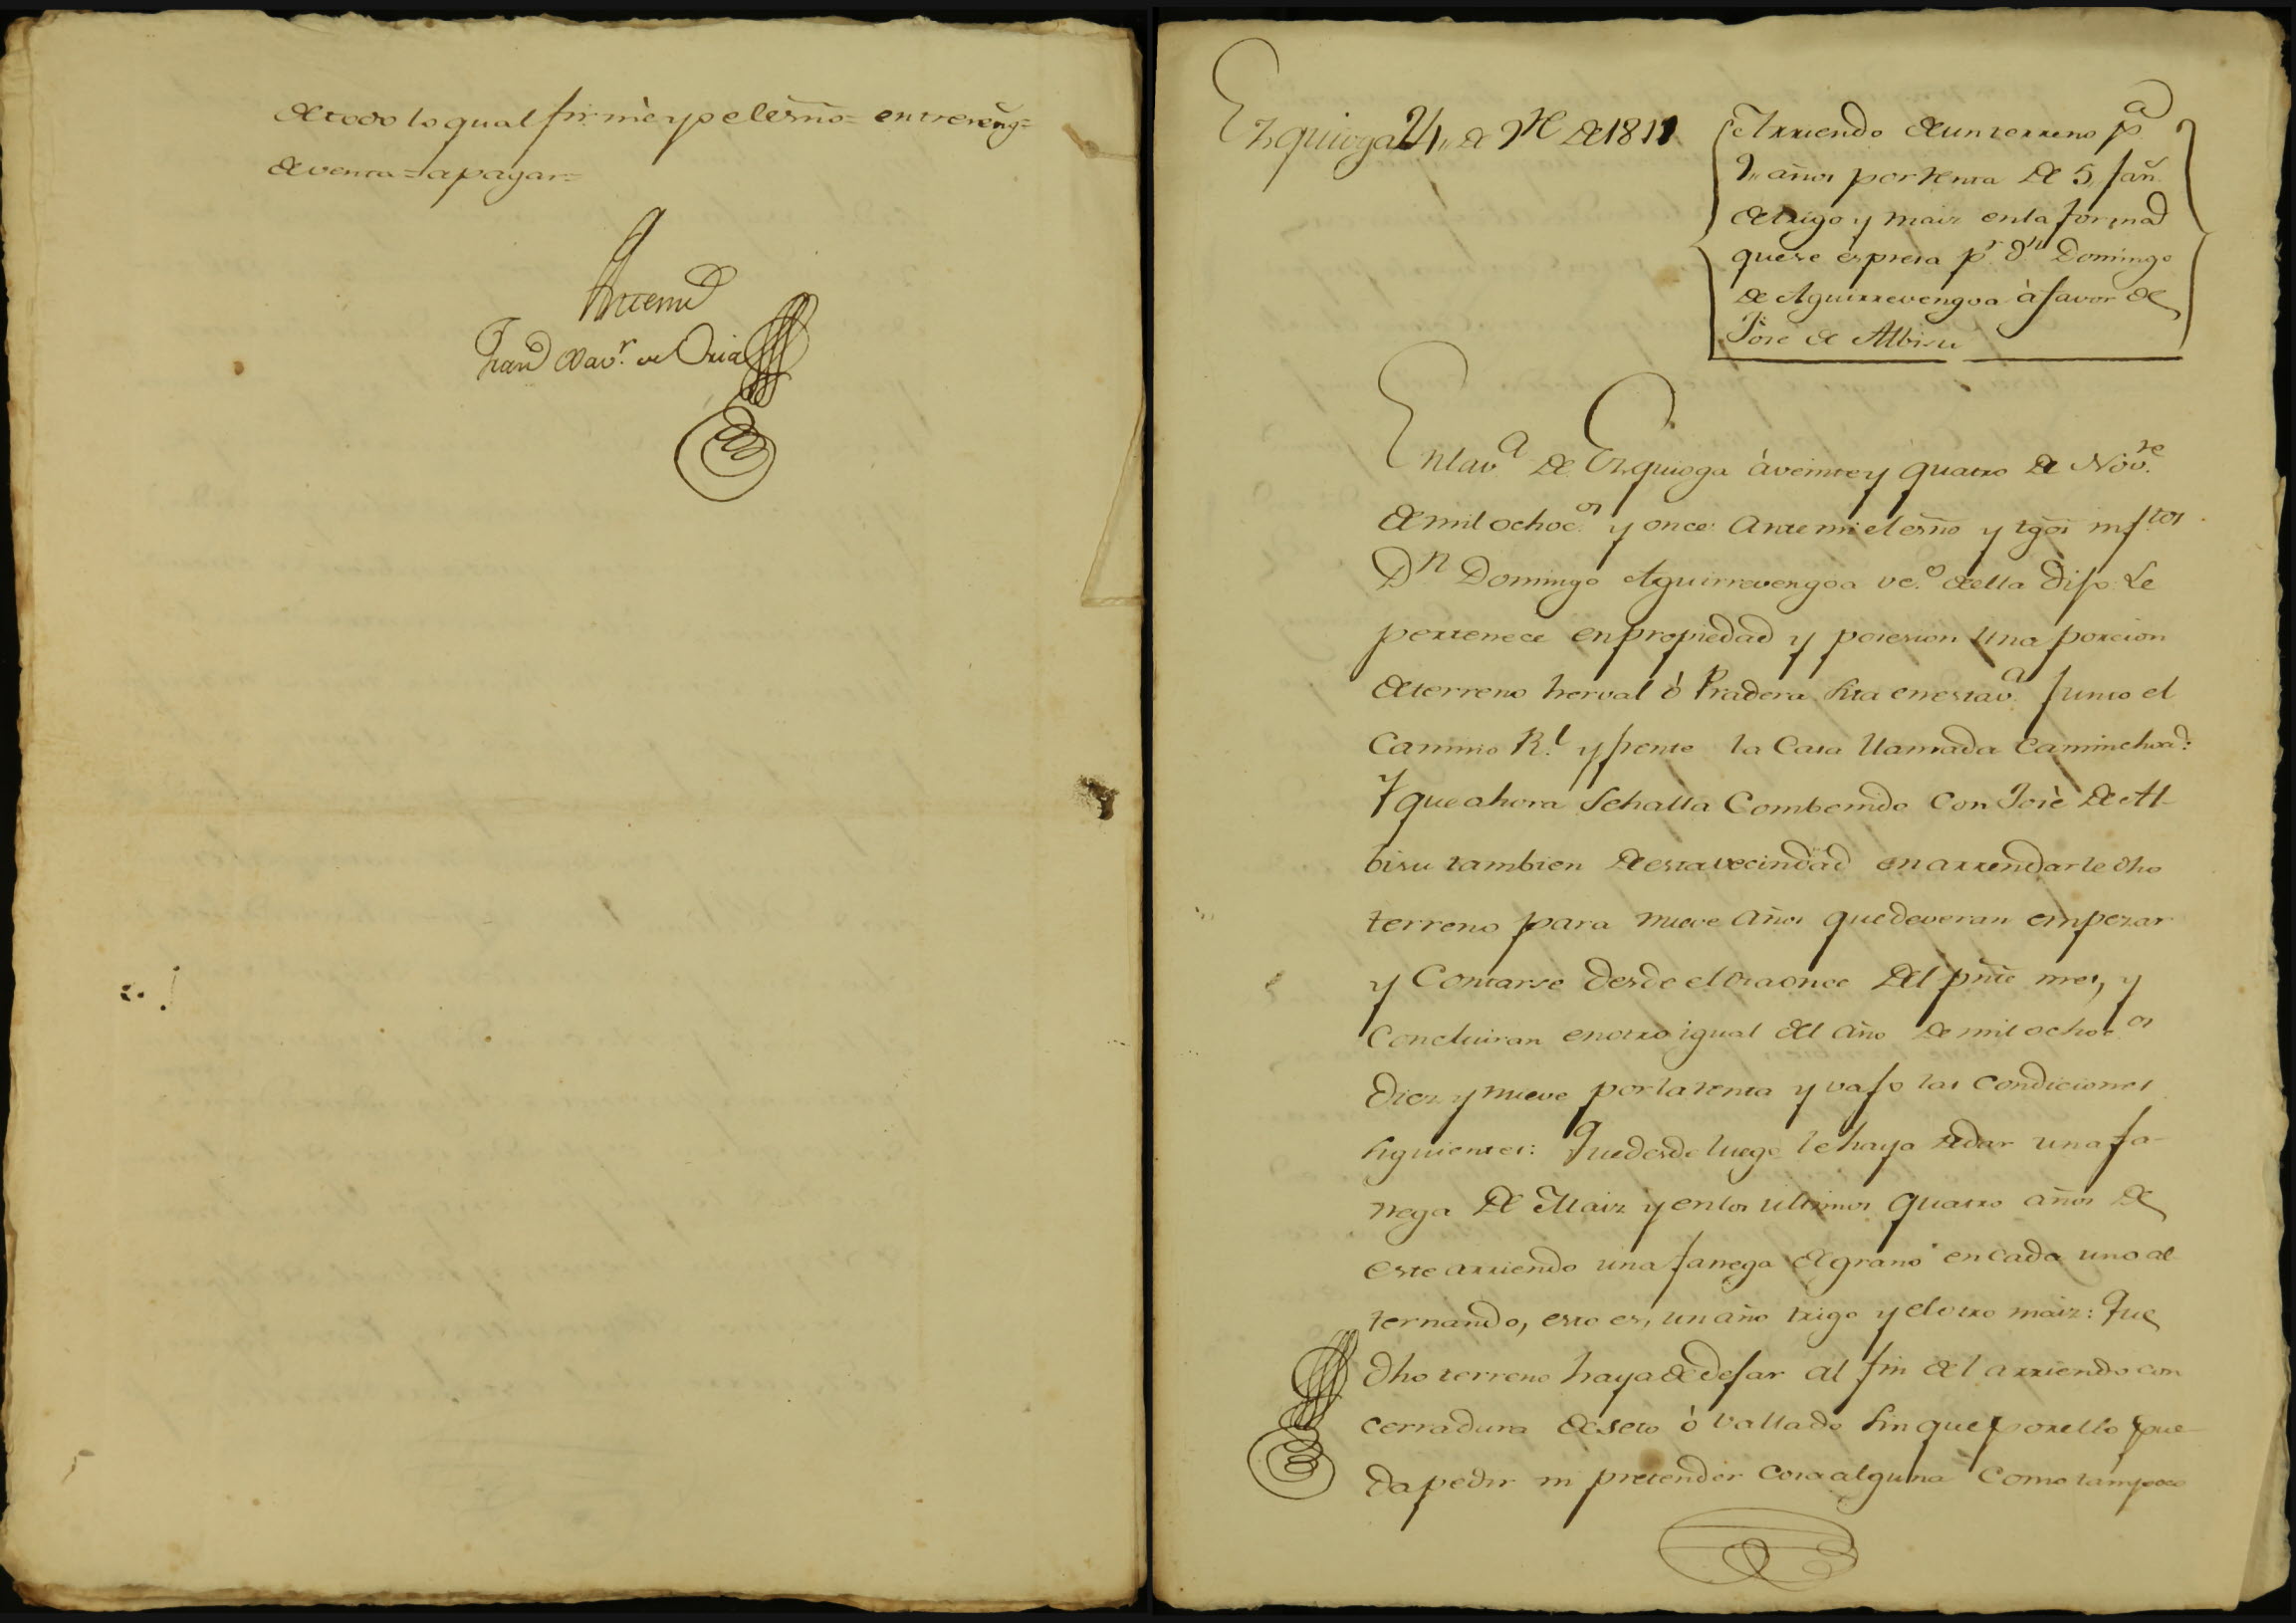 de todo lo qual firmè yo el esño= entrereng.=
de venta = apagar=
Antemi
Fran.co Xav.r de Oria
Ezquioga 24,, de Nre de 1811
Arriendo de un terreno p.a
9,, años por renta de 5,, fan.
de trigo y maiz en la forma
que se espresa p.r Dn Domingo
de Aguirrevengoa à favor de
Jose de Albisu
En la v.a de Ezquioga à veinte y quatro de Nov.re
de mil ochoc.os y once: Ante mi el esño y tgõs inf.tos
Dn Domingo Aguirrevengoa ve.o de ella Dijo: Le
pertenece en propiedad y posesion una porcion
de terreno herval ò Pradera sita en esta v.a junto el
Camino R.l y frente la Casa llamada Caminchoa:
Y que ahora se halla Combenido con Josè de Al-
bisu tambien de esta vecindad en arrendarle dho
terreno para nueve años que deveran empezar
y Contarse desde el dia once del pñte mes, y
concluiran en otro igual del año de mil ochoc.os
diez y nueve por la renta y vajo las condiciones
siguientes: Que desde luego le haya de dar una fa-
nega de Maiz y en los ultimos quatro años de
este arriendo una fanega de grano en cada uno al
ternando, esto es, un año trigo y el otro maiz: Que
dho terreno haya de dejar al fin del arriendo con
cerradura de seto ò vallado sin que por ello pue-
da pedir ni pretender cosa alguna Como tampoco